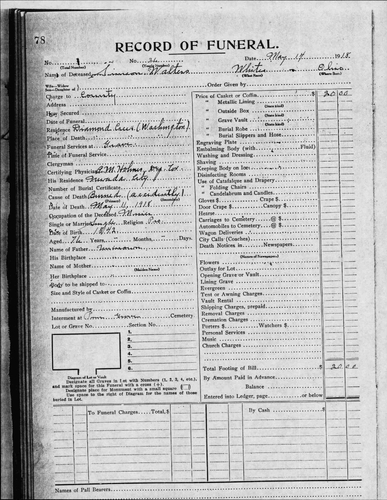 78
RECORD OF FUNERAL.
No. 1 No. 36 Date May 17 1918
(Total Number) (Yearly Number)
Name of Deceased Walters White Ohio
(What Race) (Where Born)
Order Given by
Charge to County
Address
How Secured
Date of Funeral
Residence Diamond Creek (Washington)
Place of Death
Funeral Services at Grave
Time of Funeral Service
Clergyman
Certifying Physician
His Residence Nevada City
Number of Burial Certificate
Cause of Death Burned (accidently)
Date of Death May 11, 1918
Occupation of the Deceased Miner
Single or Married Single Religion
Date of Birth 1842
Aged 76 Years, Months, Days
Name of Father
His Birthplace
Name of Mother
(Maiden Name)
Her Birthplace
Body to be shipped to
Size and Style of Casket or Coffin
Manufactured by
Interment at Cemetery
Lot or Grave No. Section No.
1.
2.
3.
4.
5.
6.
Diagram of Lot or Vault
Designate all Graves in Lot with Numbers (1, 2, 3, 4, etc.)
and mark space for this Funeral with a cross (+)
Designate place for Monument with a small square
Use space to the right of Diagram for names of those
buried in Lot.
Price of Casket or Coffin $ 20 00
" Metallic Lining
" Outside Box
" Grave Vault
" Burial Robe
" Burial Slippers and Hose
Engraving Plate
Embalming Body (with Fluid)
Washing and Dressing
Shaving
Keeping Body on Ice
Disinfecting Rooms
Use of Catafalque and Drapery
" Folding Chairs
" Candelabrum and Candles
Gloves $ Crape $
Door Crape $ Canopy $
Hearse
Carriages to Cemetery @ $
Automobiles to Cemetery @ $
Wagon Deliveries
City Calls (Coaches)
Death Notices in Newspapers
(Names of Newspapers)
Flowers
Outlay for Lot
Opening Grave or Vault
Lining Grave
Evergreen
Tent or Awning Charges
Vault Rental
Shipping Charges, prepaid
Removal Charges
Cremation Charges
Porters $ Watchers $
Personal Services
Music
Church Charges
Total Footing of Bill $ 20 00
By Amount Paid in Advance
Balance
Entered into Ledger, page or below
To Funeral Charges, Total, $ By Cash $
Names of Pall Bearers